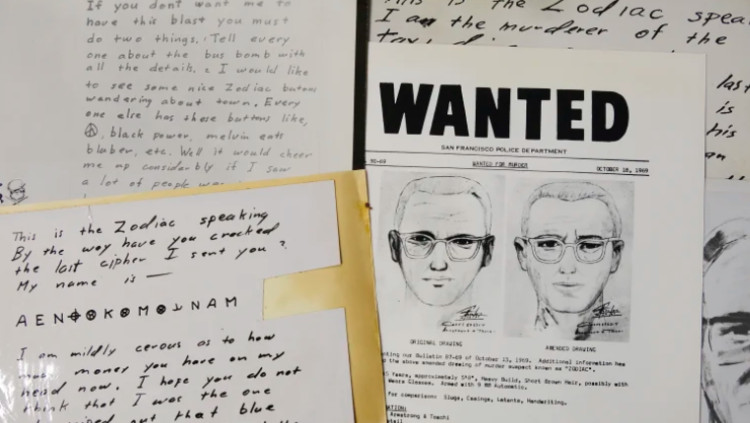 If you dont want me to
have this blast you must
do two things. Tell every
one about the bus bomb with
all the details. 2 I would like
to see some nice Zodiac butons
wandering about town. Every
one else has these buttons like,
black power, melvin eats
bluber, etc. Well it would cheer
me up considerbly if I saw
a lot of people
This is the Zodiac spea
I am the murderer of the
last
is
his
an
This is the Zodiac speaking
By the way have you cracked
the last cipher I sent you?
My name is —
A E N ⌖ ⊗ K ⊗ M ⊗ ⅃ N A M
I am mildly cerous as to how
money you have on my
head now. I hope you do not
think that I was the one
out that blue
WANTED
SAN FRANCISCO POLICE DEPARTMENT
90-69 WANTED FOR MURDER OCTOBER 18, 1969
ORIGINAL DRAWING AMENDED DRAWING
ting our Bulletin 87-69 of October 13, 1969. Additional information has
the above amended drawing of murder suspect known as "ZODIAC".
Years, approximately 5'8", Heavy Build, Short Brown Hair, possibly with
Wears Glasses. Armed with 9 MM Automatic.
For comparison: Slugs, Casings, Latents, Handwriting.
Armstrong & Toschi